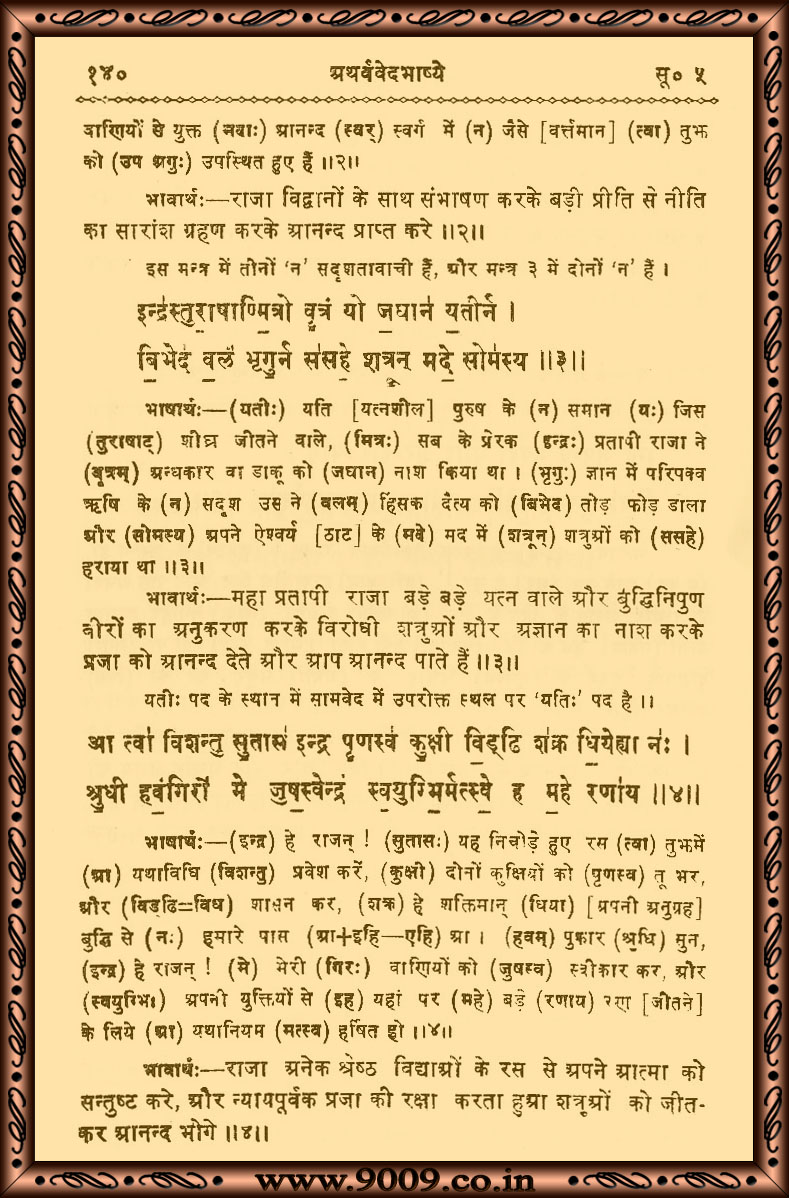 १४० अथर्ववेदभाष्ये सू० ५
वाणियों से युक्त (मदाः) आनन्द (स्वर्) स्वर्ग में (न) जैसे [वर्त्तमान] (त्वा) तुझ
को (उप अगुः) उपस्थित हुए हैं ॥२॥
भावार्थः—राजा विद्वानों के साथ संभाषण करके बड़ी प्रीति से नीति
का सारांश ग्रहण करके आनन्द प्राप्त करे ॥२॥
इस मन्त्र में तीनों ‘न’ सदृशतावाची हैं, और मन्त्र ३ में दोनों ‘न’ हैं ।
इन्द्र॑स्तुरा॒षाण्मि॒त्रो वृ॒त्रं यो ज॒घान॑ य॒तीर्न ।
बि॒भेद॑ व॒लं भृगु॒र्न स॑सहे॒ शत्रू॒न् मदे॒ सोम॑स्य ॥३॥
भाषार्थः—(यतीः) यति [यत्नशील] पुरुष के (न) समान (यः) जिस
(तुराषाट्) शीघ्र जीतने वाले, (मित्रः) सब के प्रेरक (इन्द्रः) प्रतापी राजा ने
(वृत्रम्) अन्धकार वा डाकू को (जघान) नाश किया था । (भृगुः) ज्ञान में परिपक्व
ऋषि के (न) सदृश उस ने (वलम्) हिंसक दैत्य को (बिभेद) तोड़ फोड़ डाला
और (सोमस्य) अपने ऐश्वर्य [ठाट] के (मदे) मद में (शत्रून्) शत्रुओं को (ससहे)
हराया था ॥३॥
भावार्थः—महा प्रतापी राजा बड़े बड़े यत्न वाले और बुद्धिनिपुण
वीरों का अनुकरण करके विरोधी शत्रुओं और अज्ञान का नाश करके
प्रजा को आनन्द देते और आप आनन्द पाते हैं ॥३॥
यतीः पद के स्थान में सामवेद में उपरोक्त स्थल पर ‘यतिः’ पद है ॥
आ त्वा॑ विशन्तु सु॒तास॑ इन्द्र पृ॒णस्व॑ कु॒क्षी वि॒ड्ढि श॑क्र धि॒येह्या न॑ः ।
श्रु॒धी हवं॒गिरो॑ मे जुष॒स्वेन्द्र॑ स्व॒युग्भि॒र्मत्स्वे॒ ह म॒हे रणा॑य ॥४॥
भाषार्थः—(इन्द्र) हे राजन् ! (सुतासः) यह निचोड़े हुए रस (त्वा) तुझमें
(आ) यथाविधि (विशन्तु) प्रवेश करें, (कुक्षी) दोनों कुक्षियों को (पृणस्व) तू भर,
और (विड्ढि=विध) शासन कर, (शक्र) हे शक्तिमान् (धिया) [अपनी अनुग्रह]
बुद्धि से (नः) हमारे पास (आ+इहि—एहि) आ । (हवम्) पुकार (श्रुधि) सुन,
(इन्द्र) हे राजन् ! (मे) मेरी (गिरः) वाणियों को (जुषस्व) स्वीकार कर, और
(स्वयुग्भिः) अपनी युक्तियों से (इह) यहां पर (महे) बड़े (रणाय) रण [जीतने]
के लिये (आ) यथानियम (मत्स्व) हर्षित हो ॥४॥
भावार्थः—राजा अनेक श्रेष्ठ विद्याओं के रस से अपने आत्मा को
सन्तुष्ट करे, और न्यायपूर्वक प्रजा की रक्षा करता हुआ शत्रुओं को जीत-
कर आनन्द भोगे ॥४॥
www.9009.co.in